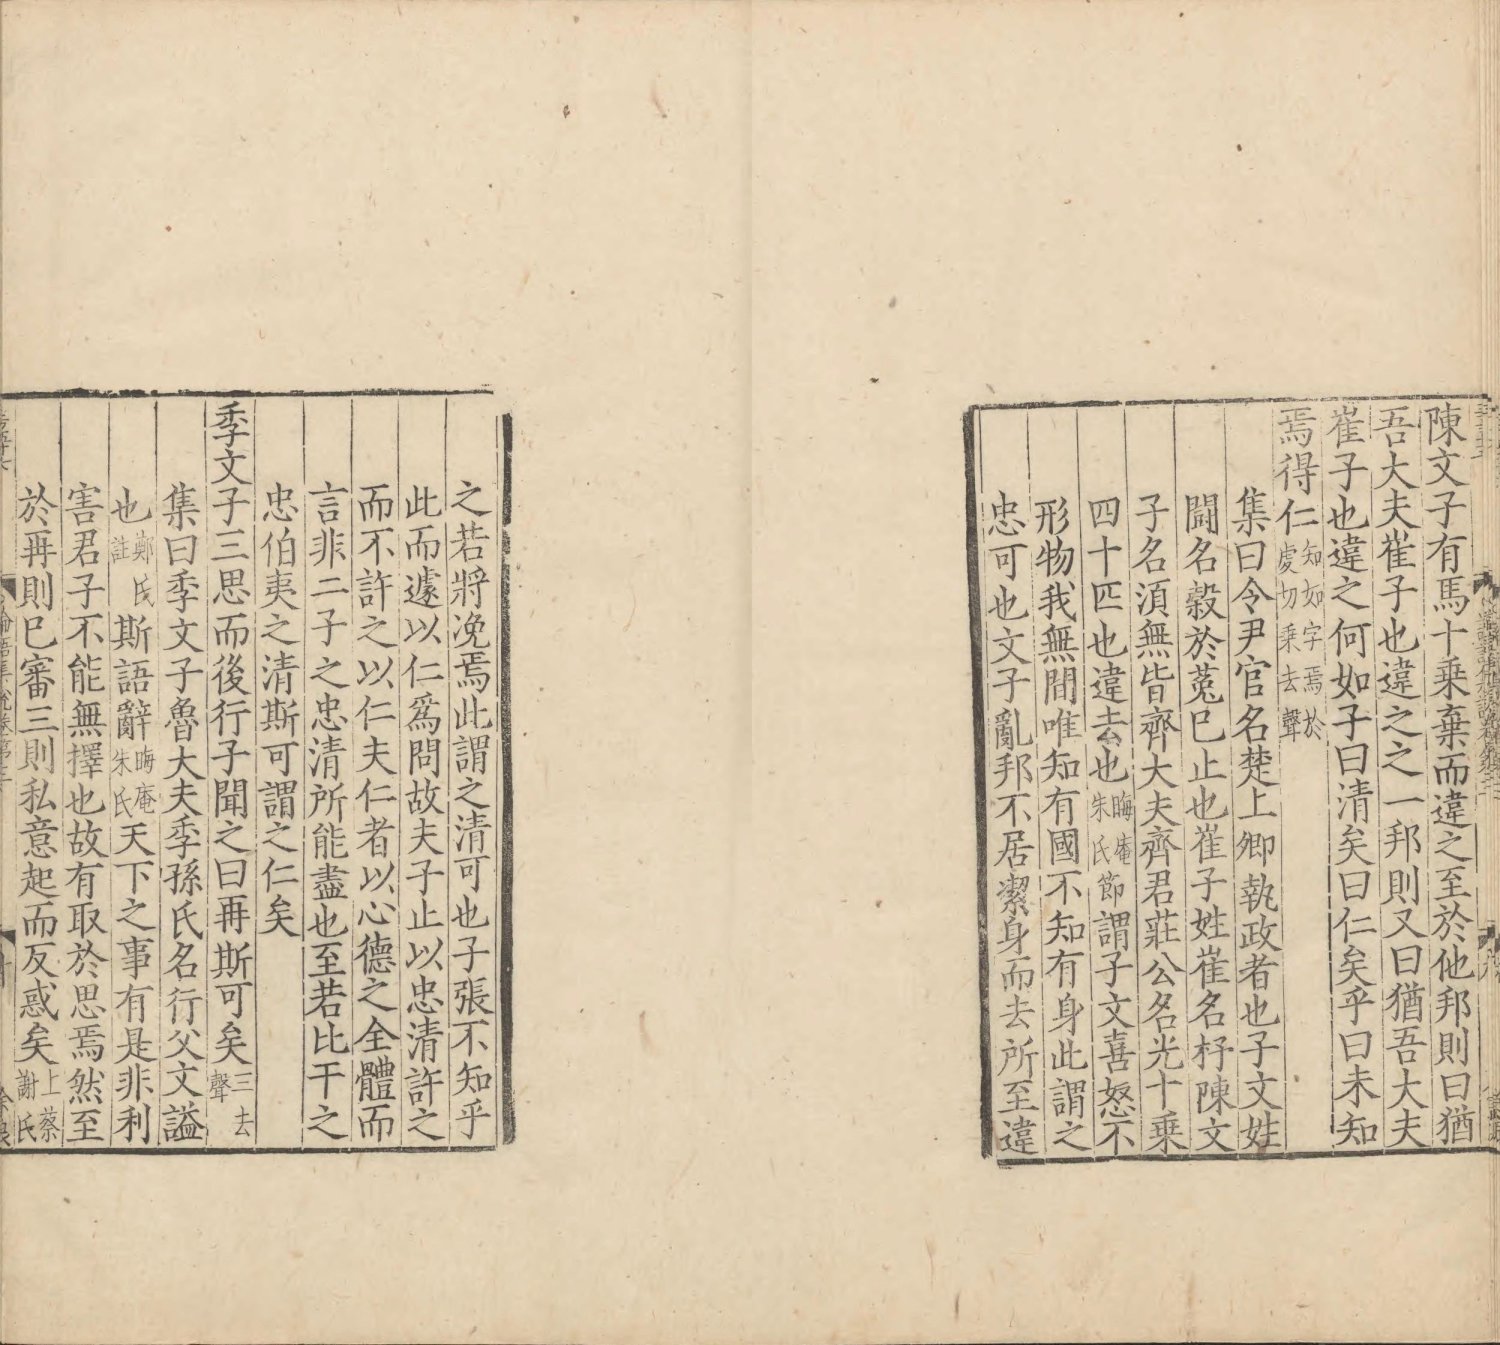 陳文子有馬十乘棄而違之至於他邦則曰猶
吾大夫崔子也違之之一邦則又曰猶吾大夫
崔子也違之何如子曰清矣曰仁矣乎曰未知
焉得仁知如字焉於虔切乘去聲
集曰令尹官名楚上卿執政者也子文姓
鬪名穀於菟巳止也崔子姓崔名杼陳文
子名湏無皆齊大夫齊君莊公名光十乘
四十匹也違去也晦庵朱氏節謂子文喜怒不
形物我無間唯知有國不知有身此謂之
忠可也文子亂邦不居潔身而去所至違
之若將浼焉此謂之清可也子張不知乎
此而遽以仁爲問故夫子止以忠清許之
而不許之以仁夫仁者以心德之全體而
言非二子之忠清所能盡也至若比干之
忠伯夷之清斯可謂之仁矣
季文子三思而後行子聞之曰再斯可矣三去聲
集曰季文子魯大夫季孫氏名行父文謚
也鄭氏註斯語辭晦庵朱氏天下之事有是非利
害君子不能無擇也故有取於思焉然至
於再則巳審三則私意起而反惑矣上蔡謝氏